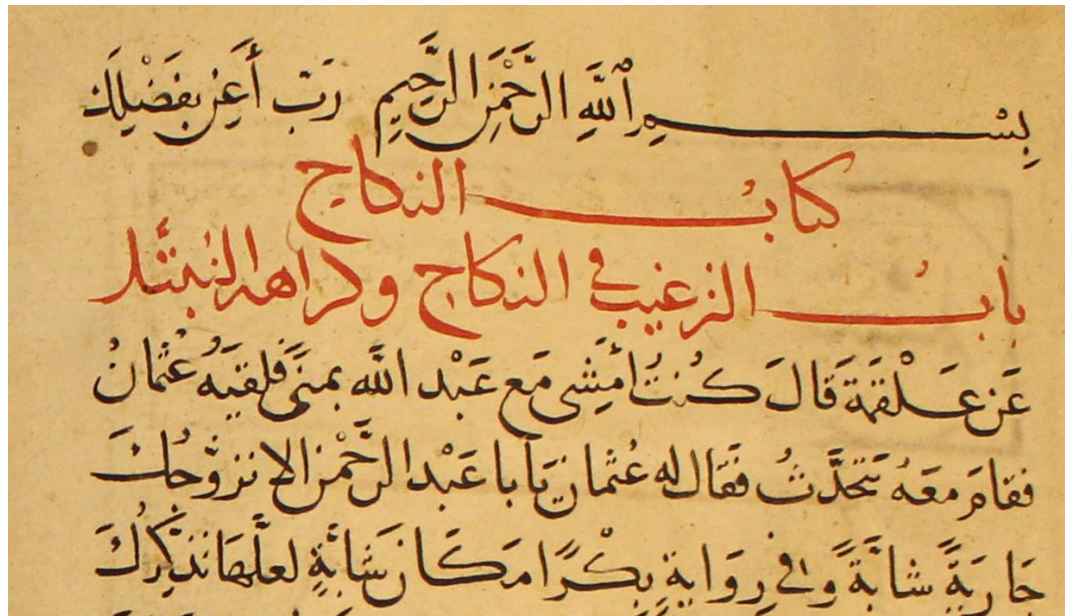 بِسْمِ ٱللَّهِ الرَّحْمَنِ الرَّحِيمِ رَبِّ أَعِنْ بِفَضْلِكَ
كتابُ النكاح
بابُ الترغيب في النكاح وكراهة التبتُّل
عَن عَلْقمَة قَالَ كُنتُ أَمْشِي مَع عَبْد اللَّه بمنًى فلقيَهُ عُثمانُ
فقامَ مَعَهُ يَتحَدَّثُ فقَال له عُثمان يَا با عَبْد الرَّحْمن الا نزوِّجُكَ
جَاريَةً شابَّةً وفي رِوَايةٍ بِكْرًا مَكَان شَابَّةٍ لعلَّهَا تذَكِّرُكَ